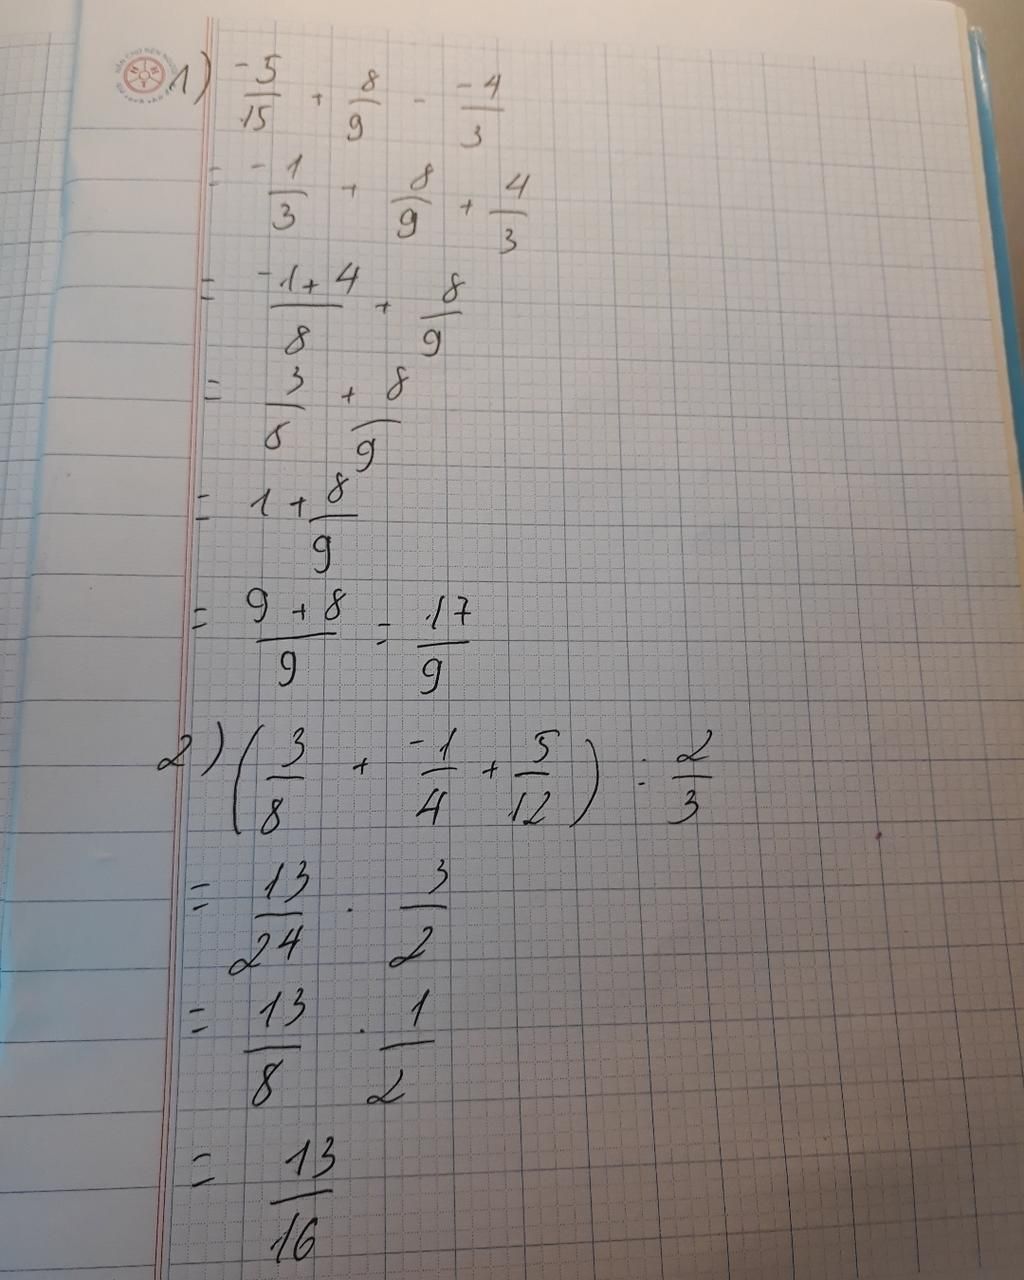 1) -5/15 + 8/9 - -4/3
= -1/3 + 8/9 + 4/3
= -1+4/8 + 8/9
= 3/8 + 8/9
= 1 + 8/9
= 9+8/9 = 17/9
2) (3/8 + -1/4 + 5/12) : 2/3
= 13/24 . 3/2
= 13/8 . 1/2
= 13/16